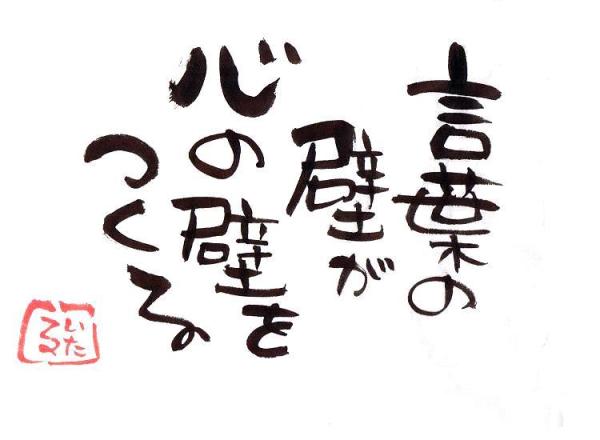 言葉の
壁が
心の壁を
つくる
いた